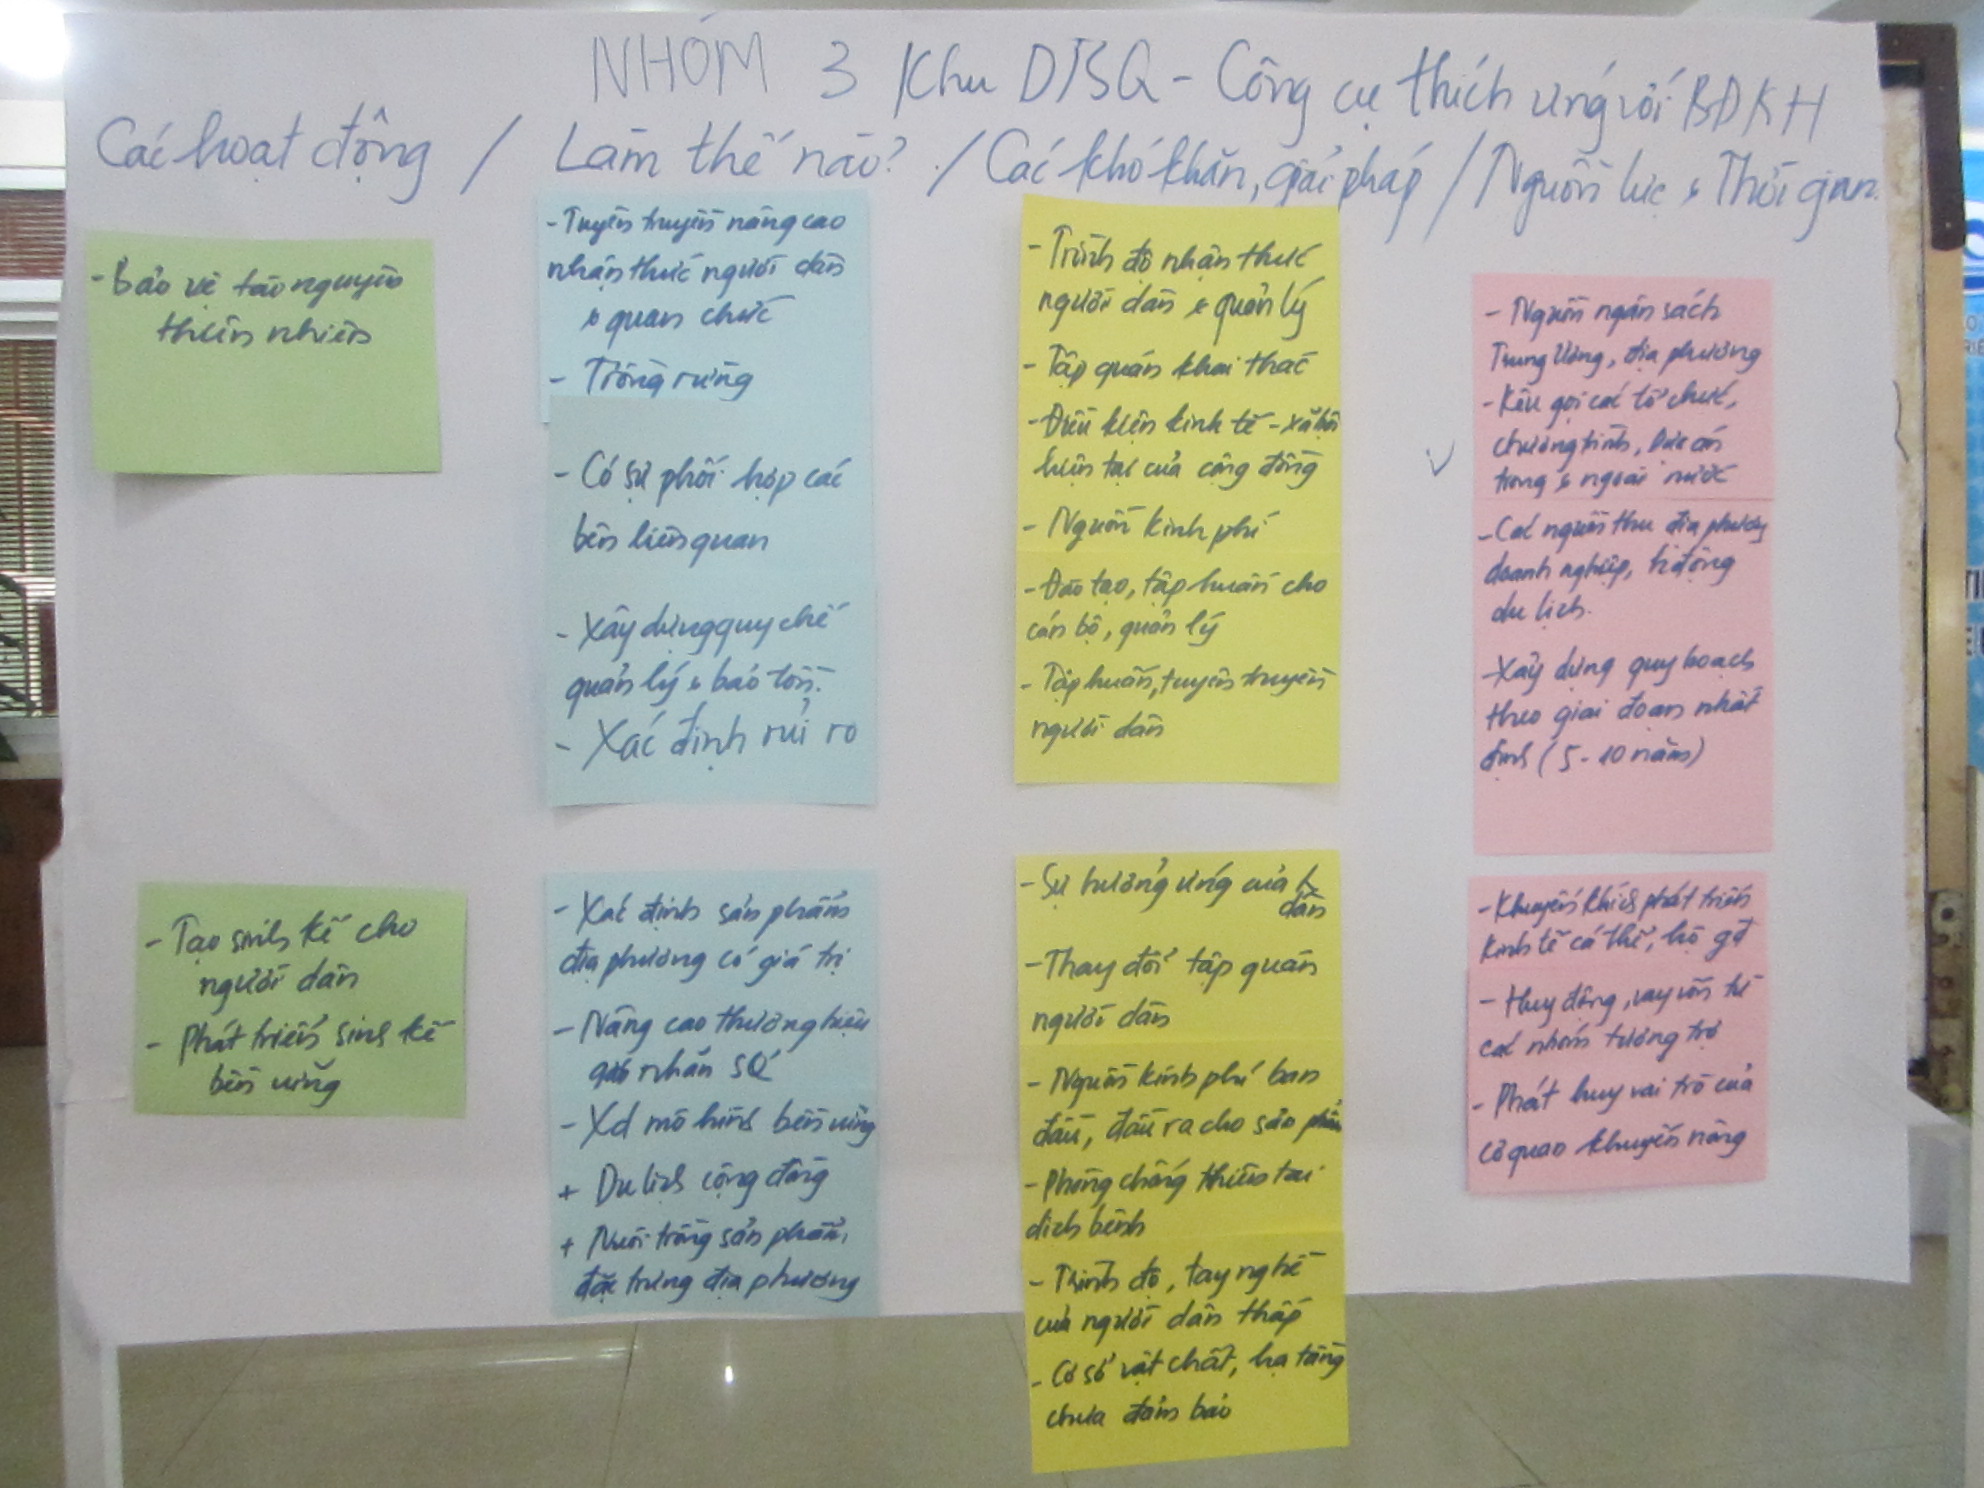 NHÓM 3 Khu DTSQ - Công cụ thích ứng với BĐKH
Các hoạt động / Làm thế nào? / Các khó khăn, giải pháp / Nguồn lực & Thời gian
- Bảo vệ tài nguyên
thiên nhiên
- Tuyên truyền nâng cao
nhận thức người dân
& quan chức
- Trồng rừng
- Có sự phối hợp các
bên liên quan
- Xây dựng quy chế
quản lý & bảo tồn.
- Xác định rủi ro
- Trình độ nhận thức
người dân & quản lý
- Tập quán khai thác
- Điều kiện kinh tế - xã hội
hiện tại của cộng đồng
- Nguồn kinh phí
- Đào tạo, tập huấn cho
cán bộ, quản lý
- Tập huấn, tuyên truyền
người dân
- Nguồn ngân sách
Trung Ương, địa phương
- Kêu gọi các tổ chức,
chương trình, Dự án
trong & ngoài nước
- Các nguồn thu địa phương
doanh nghiệp, h.động
du lịch.
- Xây dựng quy hoạch
theo giai đoạn nhất
định (5 - 10 năm)
- Tạo sinh kế cho
người dân
- Phát triển sinh kế
bền vững
- Xác định sản phẩm
địa phương có giá trị
- Nâng cao thương hiệu
gắn nhãn SQ
- Xd mô hình bền vững
+ Du lịch cộng đồng
+ Nuôi trồng sản phẩm,
đặc trưng địa phương
- Sự hưởng ứng của
dân
- Thay đổi tập quán
người dân
- Nguồn kinh phí ban
đầu, đầu ra cho sản phẩm
- Phòng chống thiên tai
dịch bệnh
- Trình độ, tay nghề
của người dân thấp
- Cơ sở vật chất, hạ tầng
chưa đảm bảo
- Khuyến khích phát triển
kinh tế cá thể, hộ gđ
- Huy động, vay vốn từ
các nhóm tương trợ
- Phát huy vai trò của
cơ quan khuyến nông